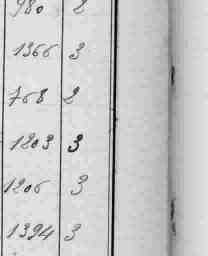 980 2
1366 3
768 2
1203 3
1206 3
1394 3